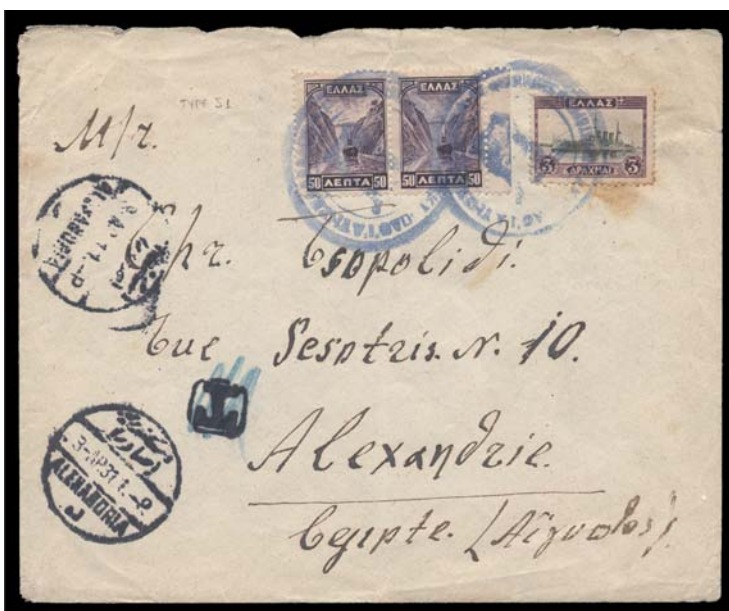 TYPE J1
ΕΛΛΑΣ
50 ΛΕΠΤΑ 50
ΕΛΛΑΣ
50 ΛΕΠΤΑ 50
ΕΛΛΑΣ
3 ΔΡΑΧΜΑΙ 3
M/r.
Chr. Tsopolidi.
Rue Sesotris. N. 10.
T
Alexandrie.
Egypte. (Αἴγυπτος).
ALEXANDRIA
3-AP.31 1.-P
ALEXANDRIA
J